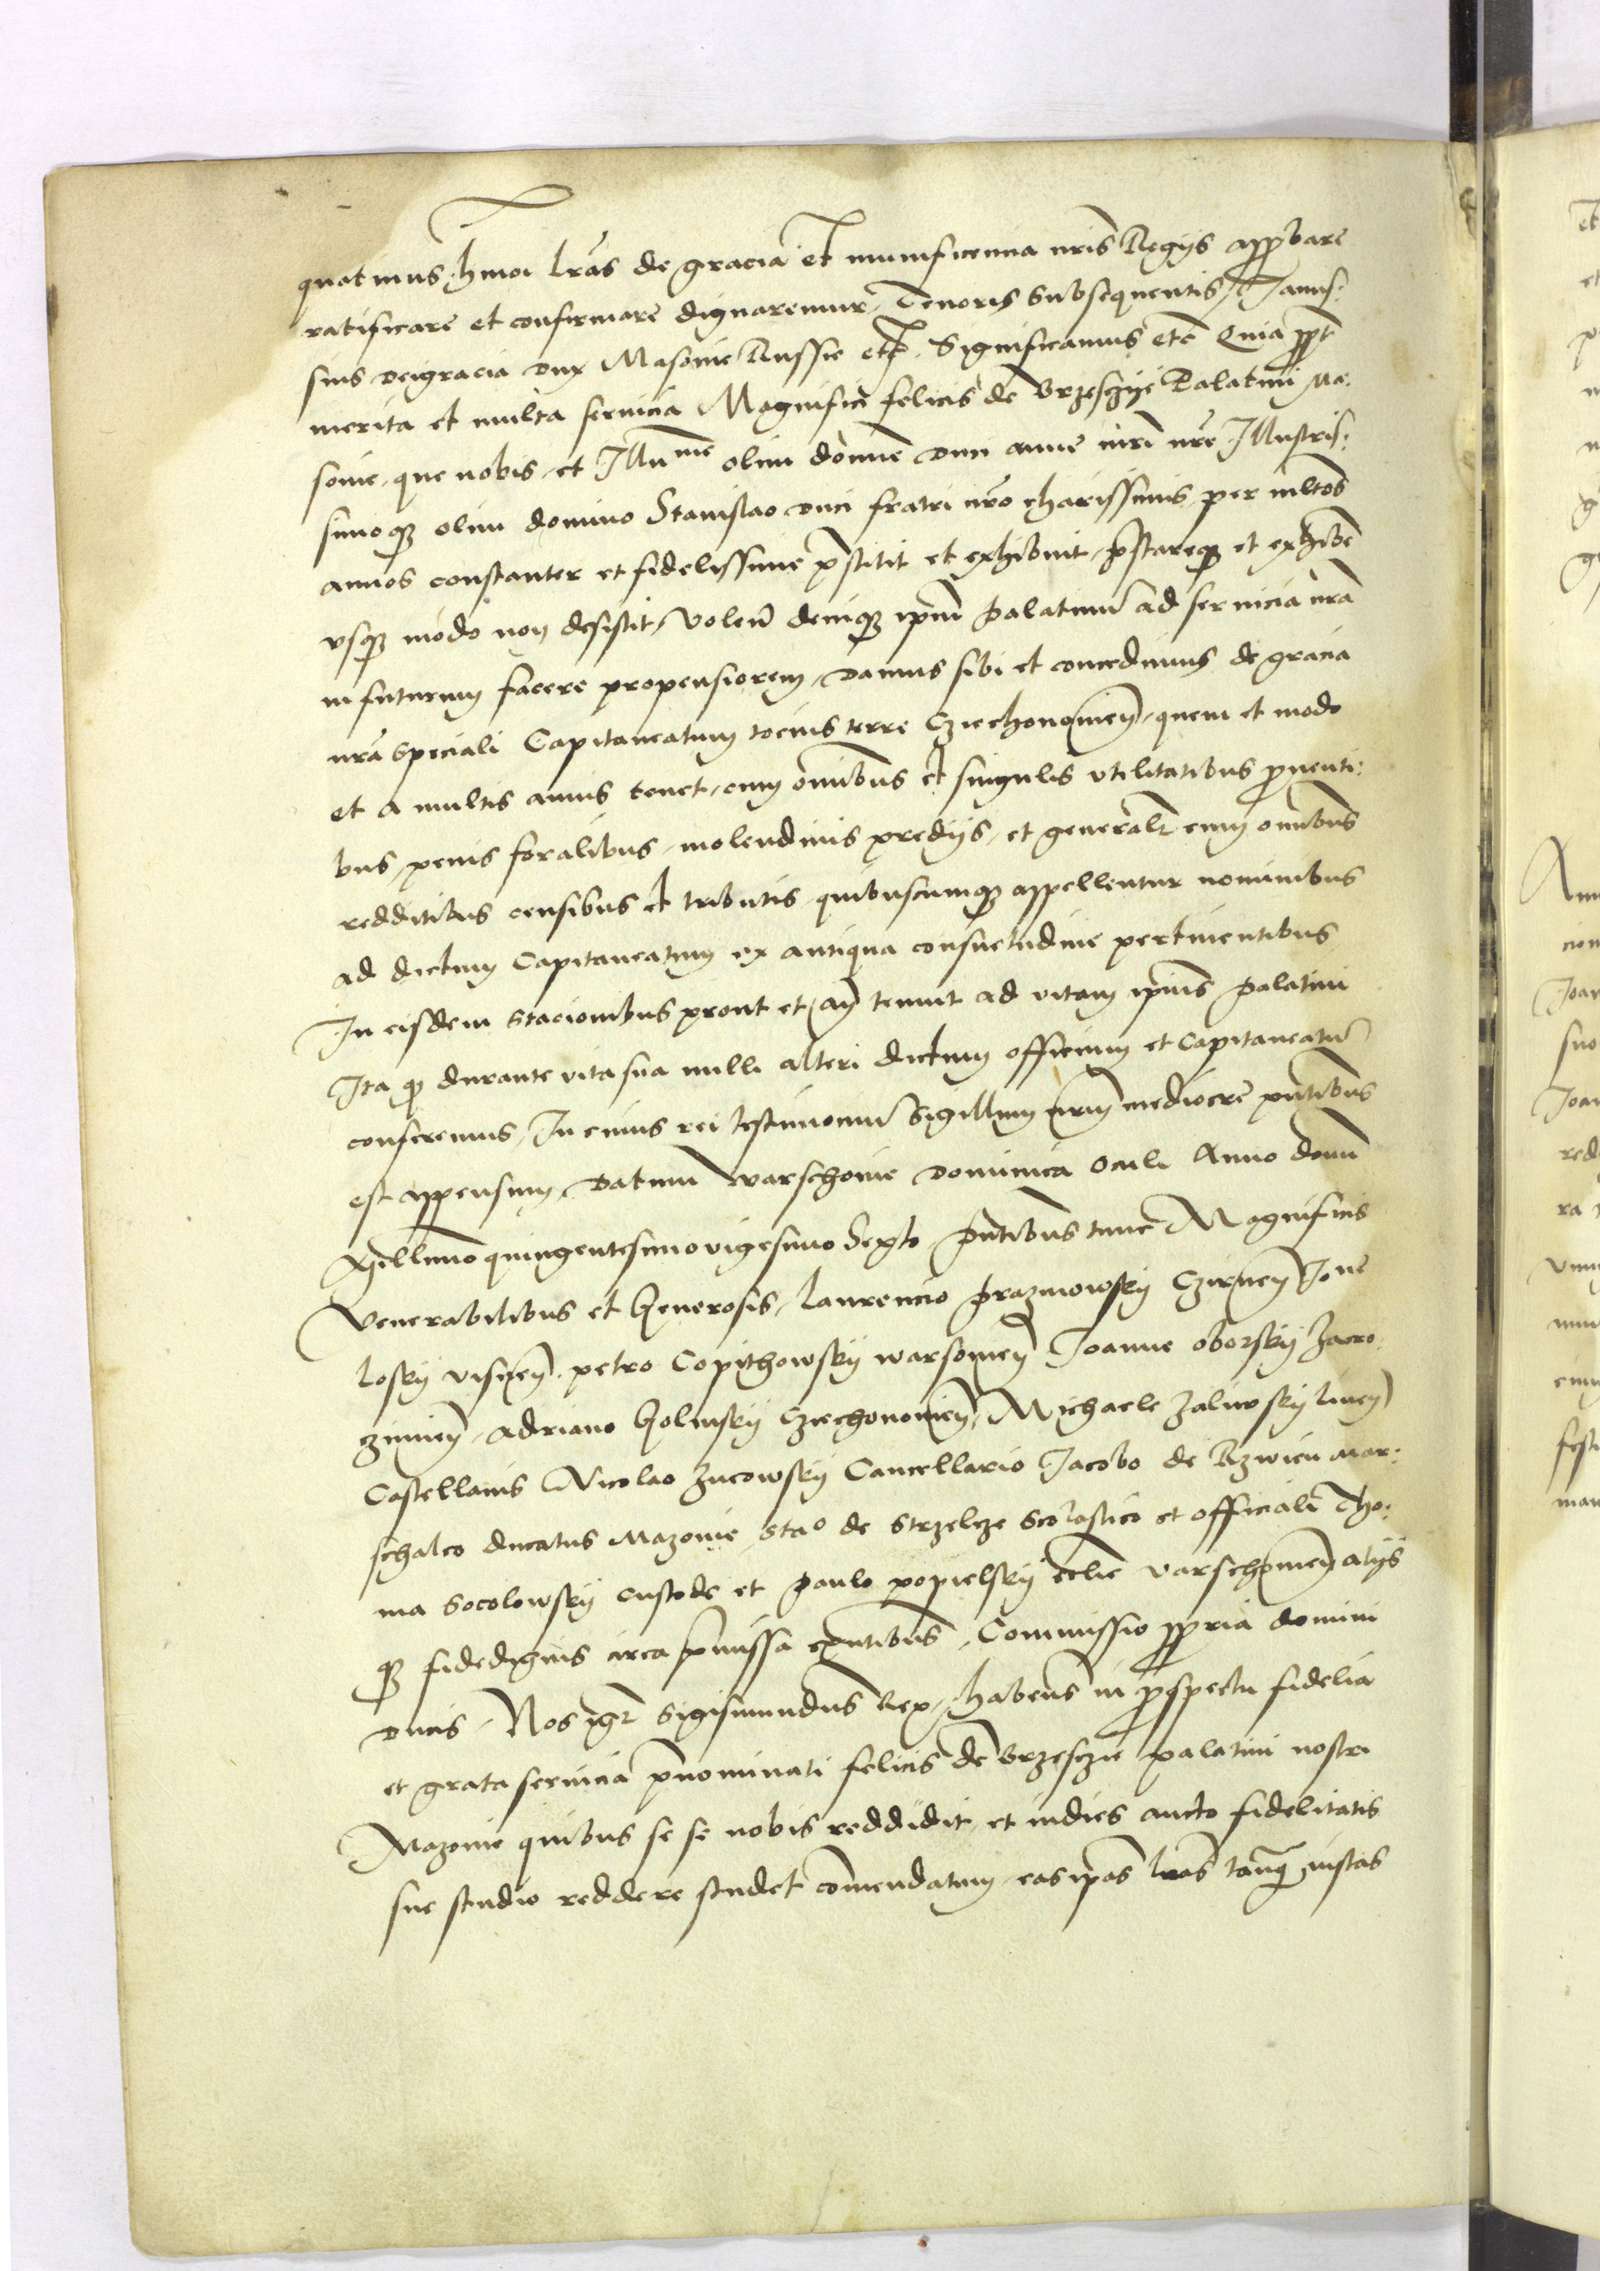 quatinus hmoi lras de gracia et munificencia nris Regijs approbare
ratificare et confirmare dignaremur, Tenoris subsequentis, Janus:
sius deigracia dux Masovie Russie etc. Significamus etc Quia ppt
merita et multa servicia Magnifici felicis de Brzesczije Palatini Ma:
sovie, que nobis, et Illu me olim domne dnn anne mri nre Illustris:
simoq olim domino Stanislao duci fratri nro charissimis per mltos
annos constanter et fidelissime pstitit et exhibuit, pstareq et exhibe
vsq modo non desistit, Volen deniq ipm palatinu ad servicia nra
in futurum facere propensiorem, damus sibi et concedimus de gracia
nra speciali Capitaneatum tocius terre Cziechonovien, quem et modo
et a multis annis tenet, cum omibus et singulis vtilitatibus proventi:
bus, penis foralibus, molendinis predijs, et generalr cum omibus
redditibus censibus et tributis quibuscumq appellentur nominibus
ad dictum Capitaneatum ex antiqua consuetudine pertinentibus
In eisdem stacionibus prout et an tenuit ad vitam ipius palatini
Ita q durante vita sua nulli alteri dictum officium et Capitaneatu
conferemus, In cuius rei testimoniu Sigillum nrum mediocre pntibus
est appensum, Datum Warschovie Dominica Oculi Anno domi
Millimo quingentesimo vigesimo Sexto pntibus tunc Magnificis
Venerabilibus et Generosis, Laurencio Prazmowsky Czirnen Jone
losky visnen petro Copithowsky warsovien Joanne oborsky Zacro:
zimien, Adriano Golinsky Cziechonovien, Michaele Zaliwsky liven
Castellanis Nicolao Zucowsky Cancellario Jacobo de Rzwien mar:
schalco ducatus Mazovie, Stao de Strzelcze Scolastico et officiali Tho:
ma Socolowsky custode et paulo popielsky eclie varschovien alijs
q fidedignis circa pmissa existentibus, Commissio ppria domini
ducis, Nos igr Sigismundus Rex, habens in prospectu fidelia
et grata servicia pnominati felicis de Brzesczie palatini nostri
Mazovie quibus se se nobis reddidit, et indies aucto fidelitatis
sue studio reddere studet comendatum, eas ipas lras tanq iustas